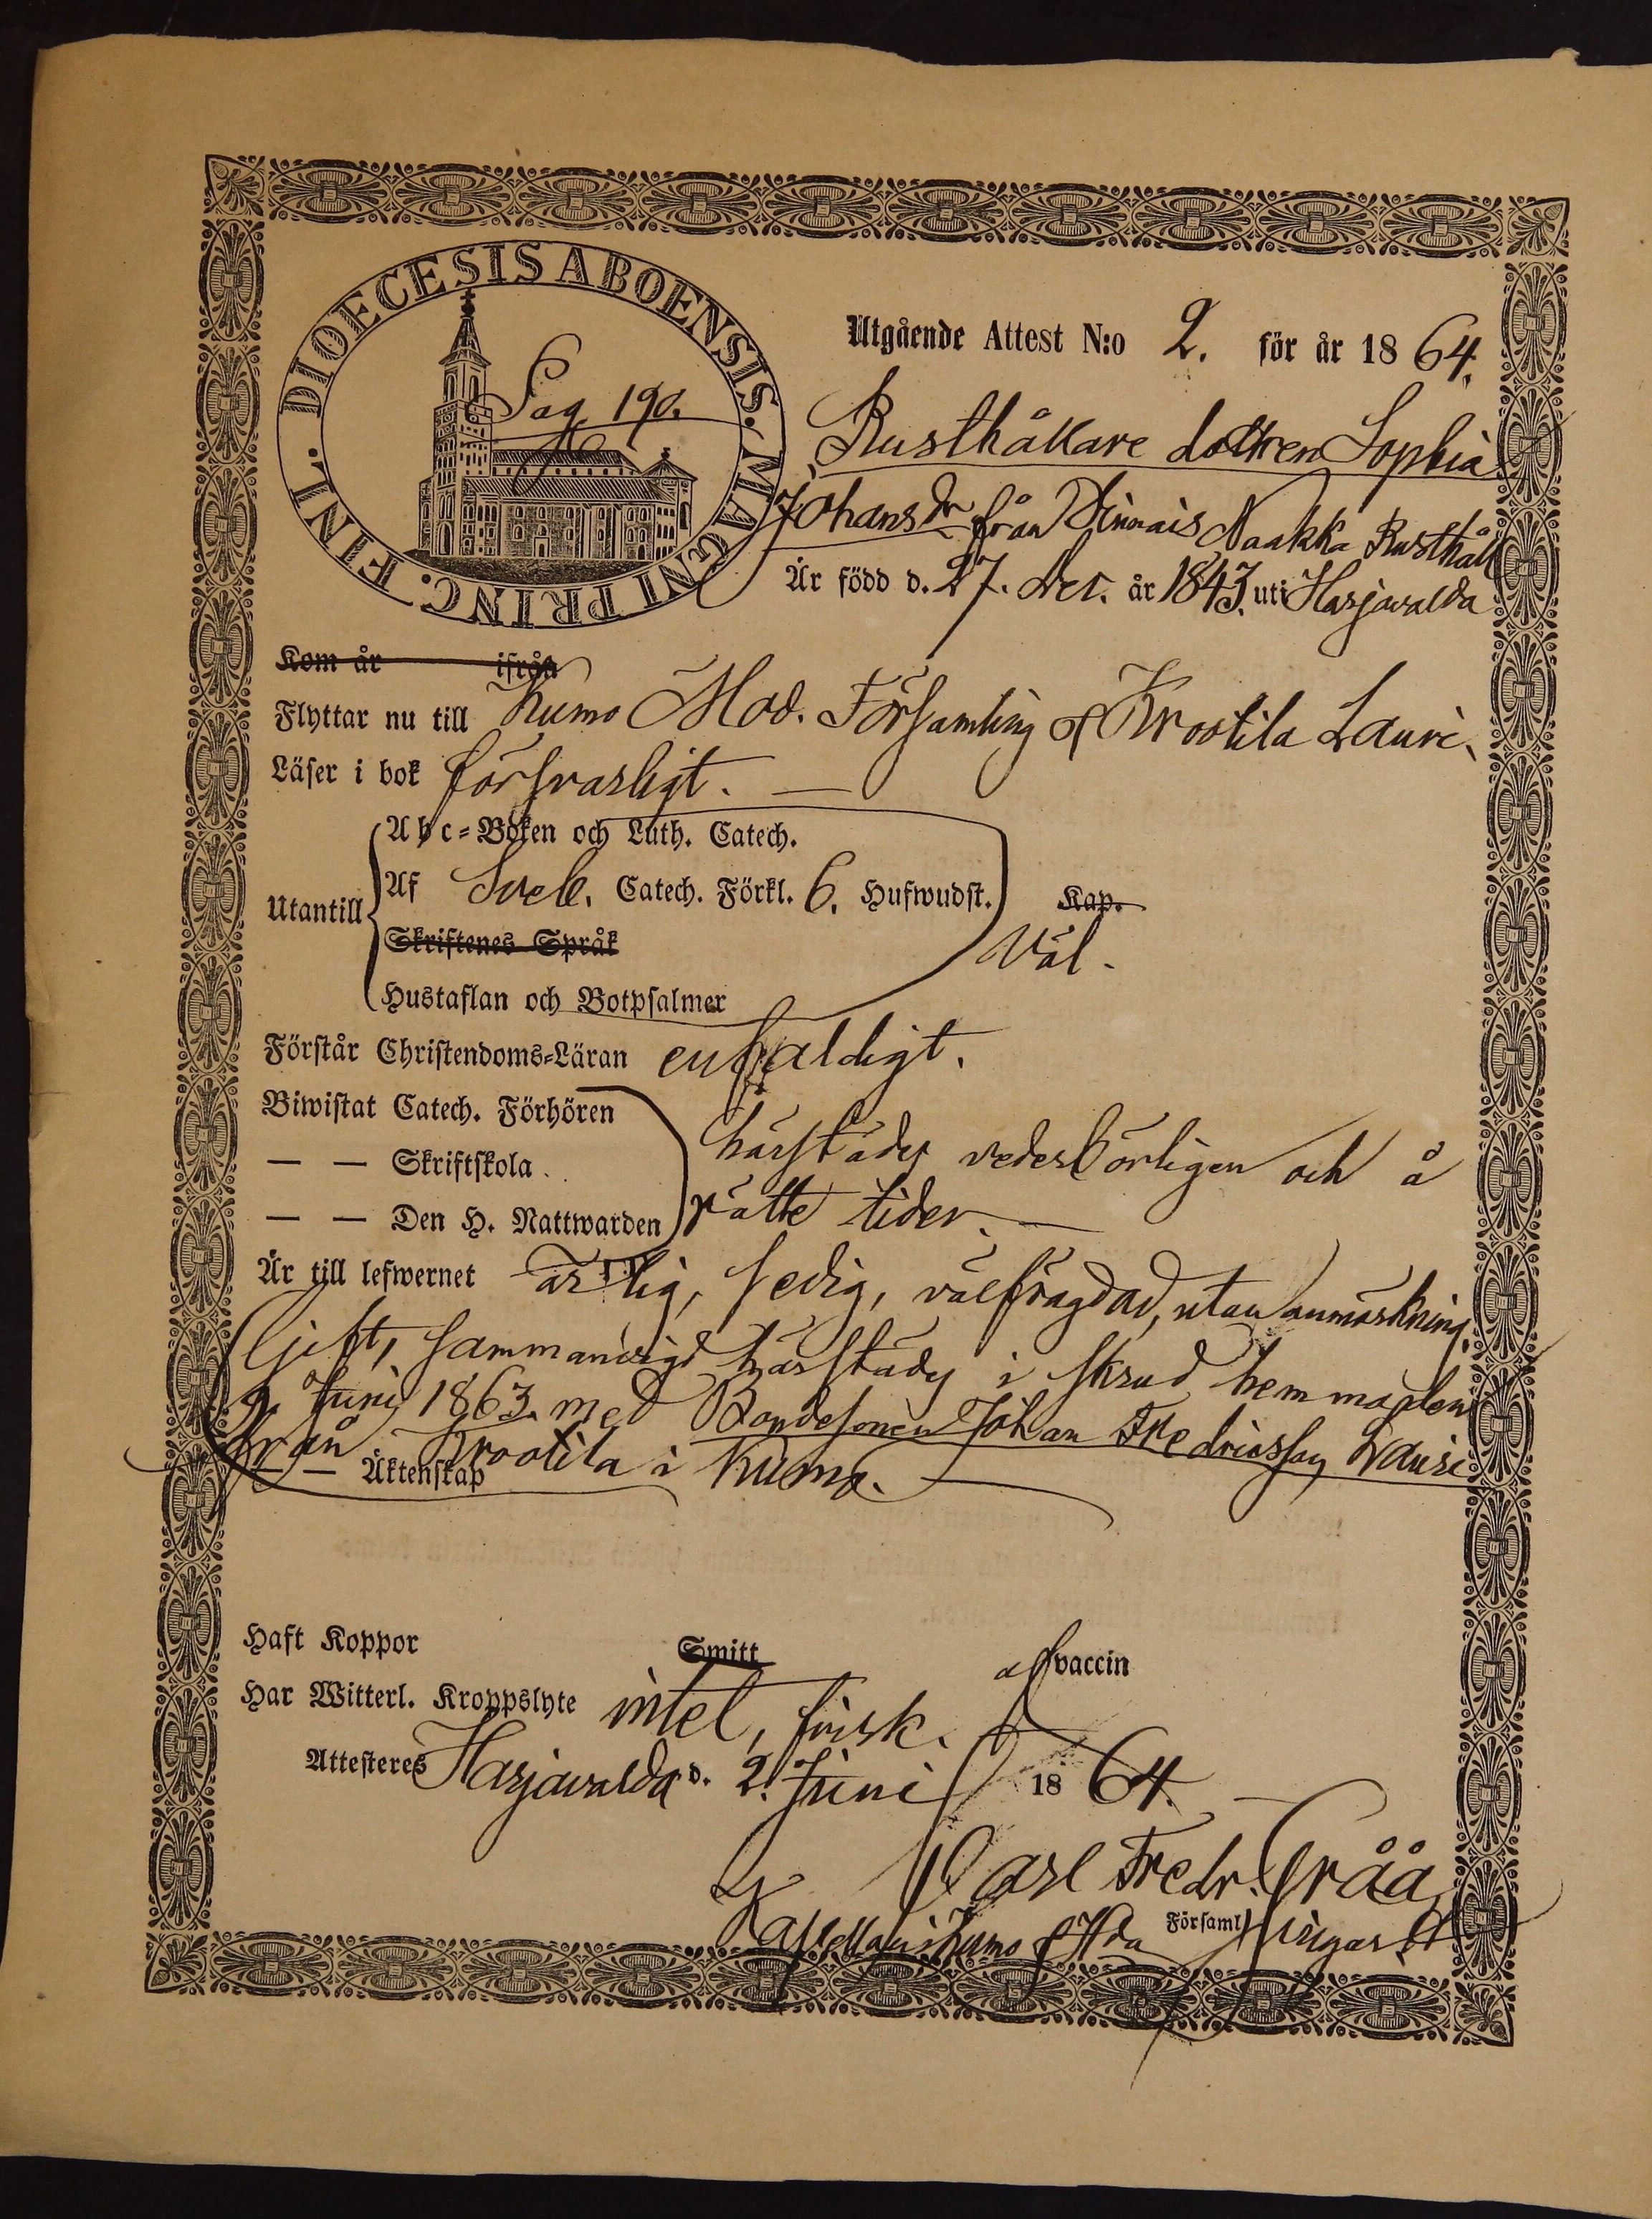 DIOECESIS ABOENSIS. MAGNI PRINC. FINL.
Pag 190.
Utgående Attest N:o 2. för år 1864.
Rusthållare dottren Sophia
Johansdr från Hinnais Naakka Rusthåll
Är född d. 27. Dec. år 1843. uti Harjavalda
Kom år ifrån
Flyttar nu till Kumo Mod. Församling & Krootila Lauri.
Läser i bok försvarligt. —
Abc-Boken och Luth. Catech.
Utantill
Af Sveb. Catech. Förkl. 6. Hufwudst. Kap.
Skriftenes Språk
Väl.
Hustaflan och Botpsalmer
Förstår Christendoms-Läran enfaldigt.
Biwistat Catech. Förhören
— — Skriftskola
härstädes vederbörligen och å
— — Den H. Nattwarden rätte tider. —
Är till lefwernet ärlig, sedig, välfrägdad, utan anmärkning.
Gift, sammanvigd härstädes i Skrud hemma den
2. Junij 1863. med Bondesonen Johan Fredricsson Lauri
från Krootila i Kumo. —
— — Äktenskap
Haft Koppor Smitt af vaccin
Har Witterl. Kroppslyte intet, frisk.
Attesteres Harjavalda d. 2. Juni 1864. —
Carl Fredr. Gråå
Kapellan i Kumo & H:da Församlingar